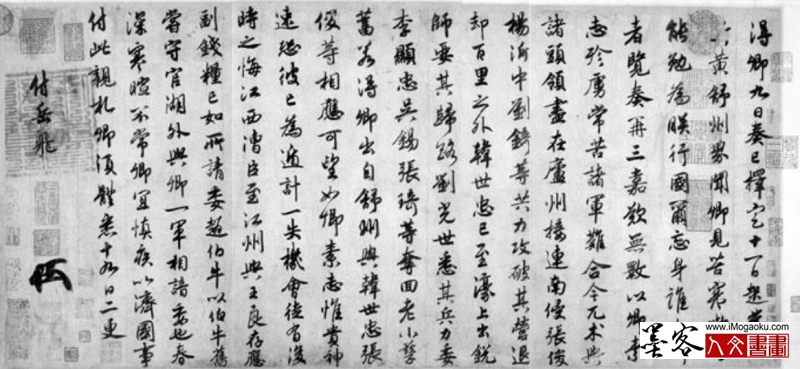 得卿九日奏已擇定十一日起發
黃舒州界聞卿見苦寒
能勉為朕行國爾忘身誰
者覽奏再三嘉歎無斁以卿素
志殄虜常苦諸軍難合今兀朮與
諸頭領盡在廬州接連南侵張俊
楊沂中劉錡等共力攻破其營退
却百里之外韓世忠已至濠上出銳
師要其歸路劉光世悉其兵力委
李顯忠吳錫張琦等奪回老小孳
畜若得卿出自舒州與韓世忠張
俊等相應可望如卿素志惟貴神
速恐彼已為遁計一失機會徒有後
時之悔江西漕臣至江州與王良存應
副錢糧已如所請委趙伯牛以伯牛舊
嘗守官湖外與卿一軍相諳委也春
深寒暄不常卿宜慎疾以濟國事
付此親札卿須體悉十九日二更
付岳飛
墨客
www.iMogaoku.com
人文書畫